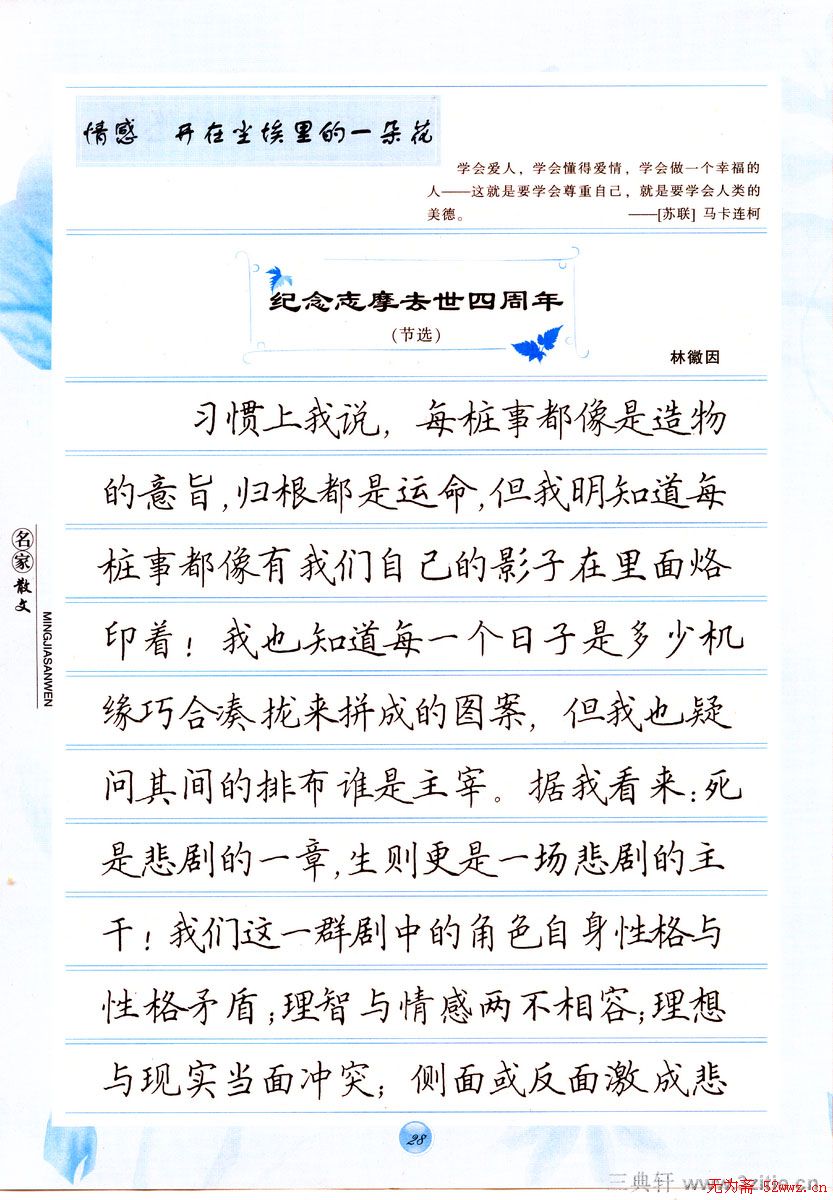 情感 开在尘埃里的一朵花
学会爱人，学会懂得爱情，学会做一个幸福的
人——这就是要学会尊重自己，就是要学会人类的
美德。 ——[苏联] 马卡连柯
纪念志摩去世四周年
(节选)
林徽因
习惯上我说，每桩事都像是造物
的意旨,归根都是运命,但我明知道每
桩事都像有我们自己的影子在里面烙
印着！我也知道每一个日子是多少机
缘巧合凑拢来拼成的图案，但我也疑
问其间的排布谁是主宰。据我看来:死
是悲剧的一章,生则更是一场悲剧的主
干！我们这一群剧中的角色自身性格与
性格矛盾;理智与情感两不相容;理想
与现实当面冲突；侧面或反面激成悲
名家散文
MINGJIASANWEN
28
三典轩
无为斋·52wwz.cn